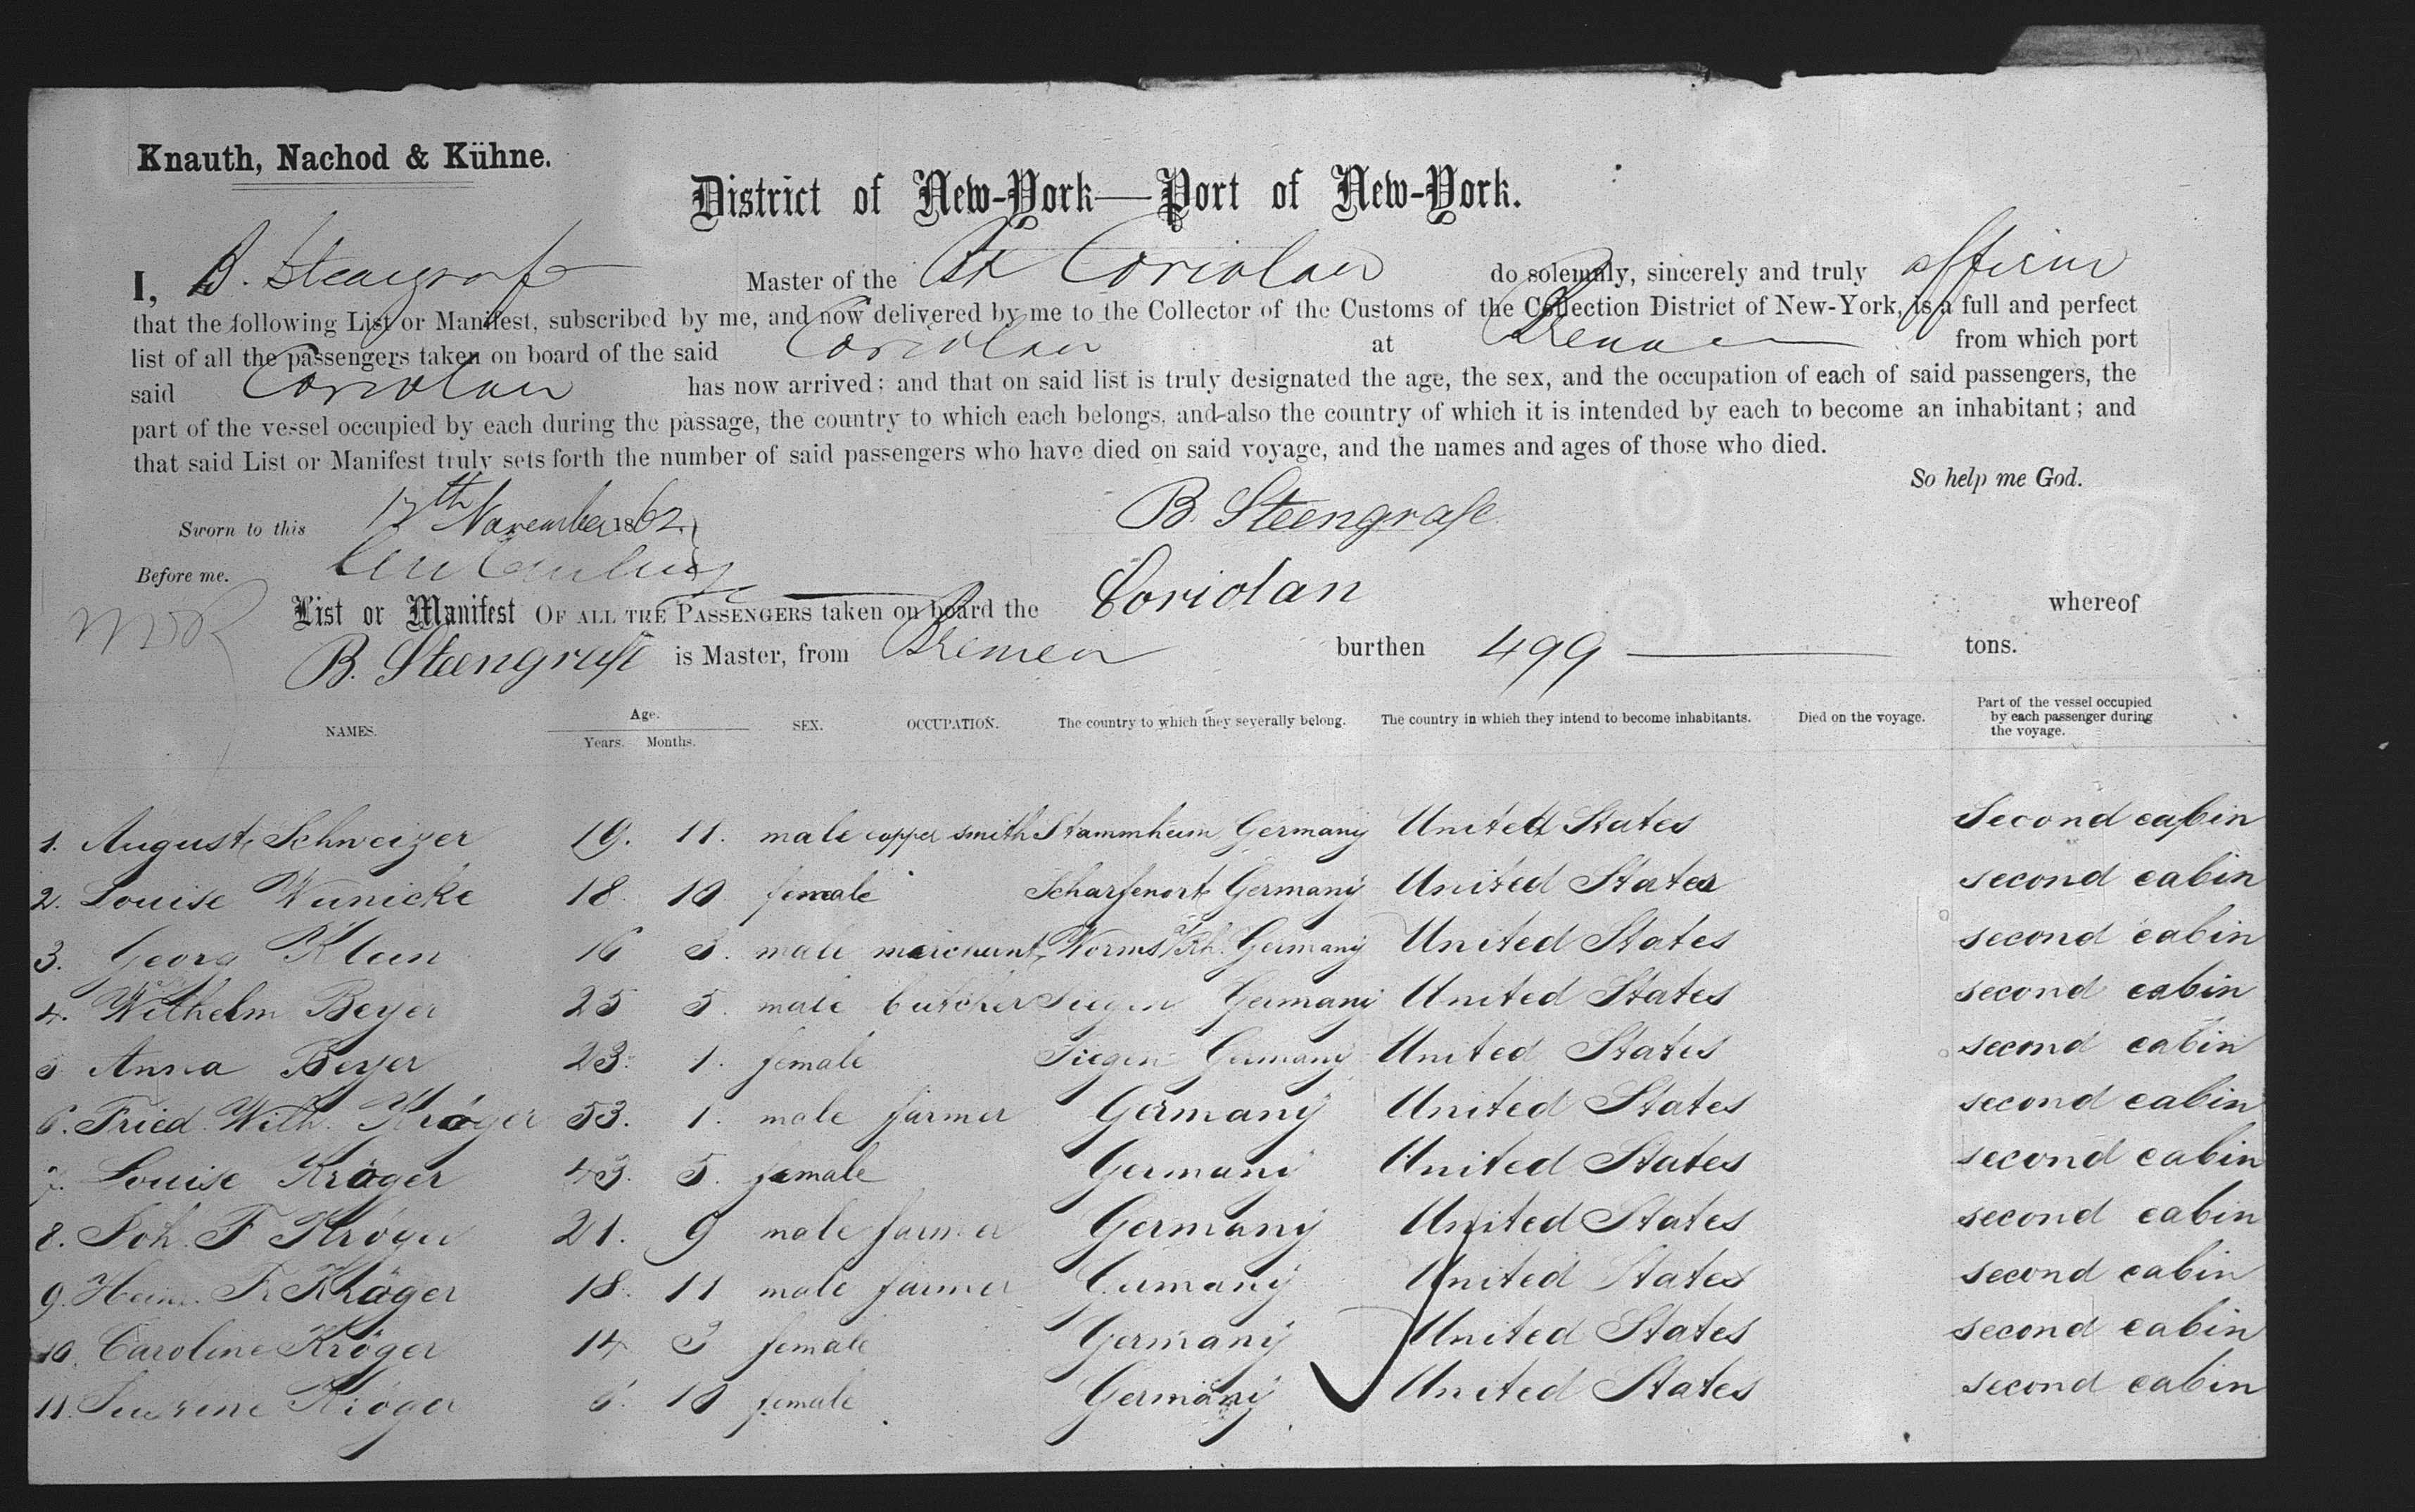 Knauth, Nachod & Kühne.
District of New-York—Port of New-York.
I, B. Steengrafe Master of the Coriolan do solemnly, sincerely and truly affirm
that the following List or Manifest, subscribed by me, and now delivered by me to the Collector of the Customs of the Collection District of New-York, is a full and perfect
list of all the passengers taken on board of the said Coriolan at Bremen from which port
said Coriolan has now arrived: and that on said list is truly designated the age, the sex, and the occupation of each of said passengers, the
part of the vessel occupied by each during the passage, the country to which each belongs, and also the country of which it is intended by each to become an inhabitant; and
that said List or Manifest truly sets forth the number of said passengers who have died on said voyage, and the names and ages of those who died.
So help me God.
Sworn to this 17th November 1862. B. Steengrafe
Before me.
List or Manifest OF ALL THE PASSENGERS taken on board the Coriolan whereof
B. Steengrafe is Master, from Bremen burthen 499 tons.
NAMES. Age. Years. Months. SEX. OCCUPATION. The country to which they severally belong. The country in which they intend to become inhabitants. Died on the voyage. Part of the vessel occupied by each passenger during the voyage.
1. August Schweizer 19. 11. male copper smith Stammheim Germany United States Second cabin
2. Louise Wunicke 18 10 female Scharfenort Germany United States second cabin
3. Georg Klein 16 5. male merchant Worms a/Rh. Germany United States second cabin
4. Wilhelm Beyer 25 5. male butcher Siegen Germany United States second cabin
5 Anna Beyer 23. 1. female Siegen Germany United States second cabin
6. Fried. Wilh. Kröger 53. 1. male farmer Germany United States second cabin
7. Louise Kröger 43. 5. female Germany United States second cabin
8. Joh. F Kröger 21. 9 male farmer Germany United States second cabin
9. Heinr. F. Kröger 18. 11 male farmer Germany United States second cabin
10. Caroline Kröger 14 3 female Germany United States second cabin
11. Kröger 6. 10 female Germany United States second cabin